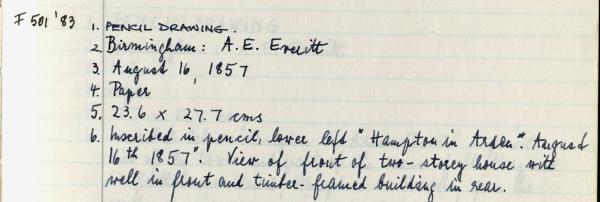 F 501 '83 1. PENCIL DRAWING.
2. Birmingham: A. E. Everitt
3. August 16, 1857
4. Paper
5. 23.6 x 27.7 cms
6. Inscribed in pencil, lower left "Hampton in Arden". August
16th 1857". View of front of two-storey house with
well in front and timber-framed building in rear.